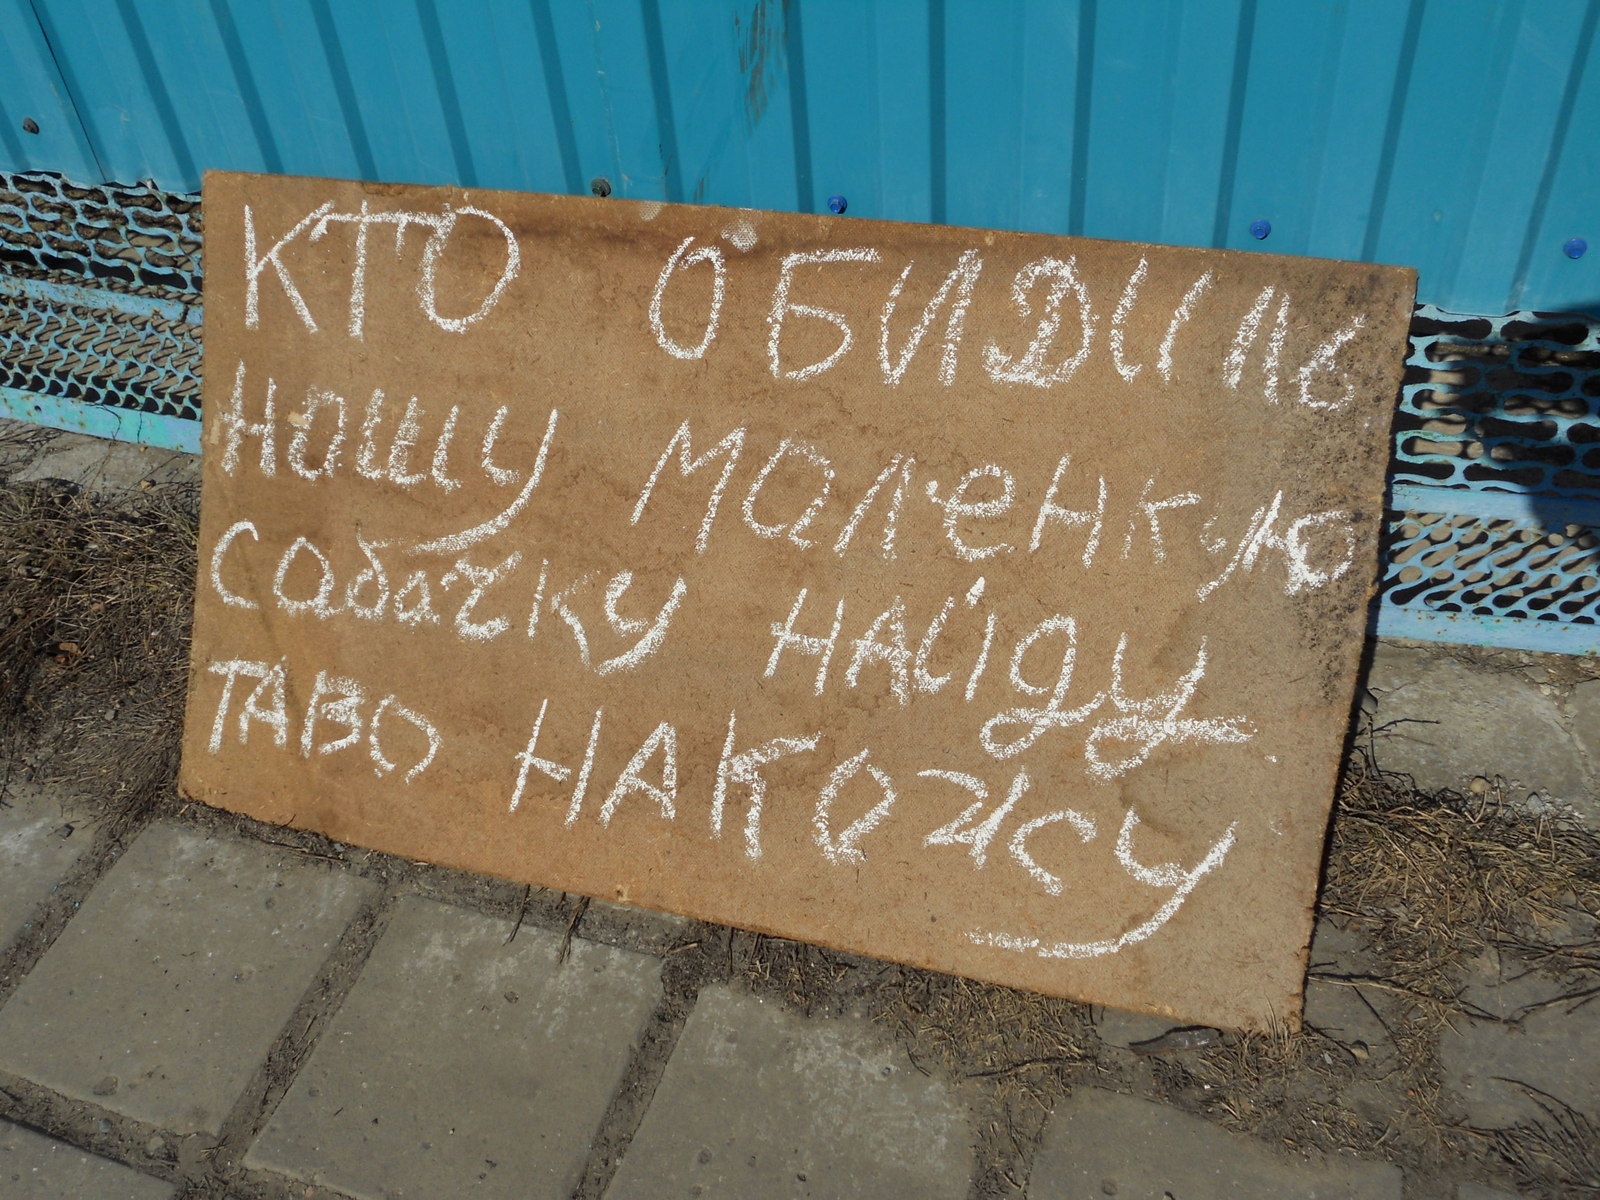 КТО ОБИДИЛЬ
НОШУ МОЛЕНКУЮ
СОБАЧКУ НАЙДУ
ТАВО НАКОЖУ